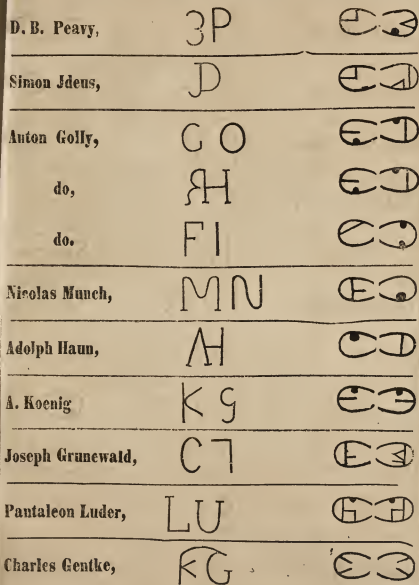 D. B. Peavy, 3P
Simon Jdeus, JD
Anton Golly, G O
do, RH
do. F I
Nicolas Munch, M N
Adolph Haun, AH
A. Koenig K G
Joseph Grunewald, C 7
Pantaleon Luder, L U
Charles Gentke, KG